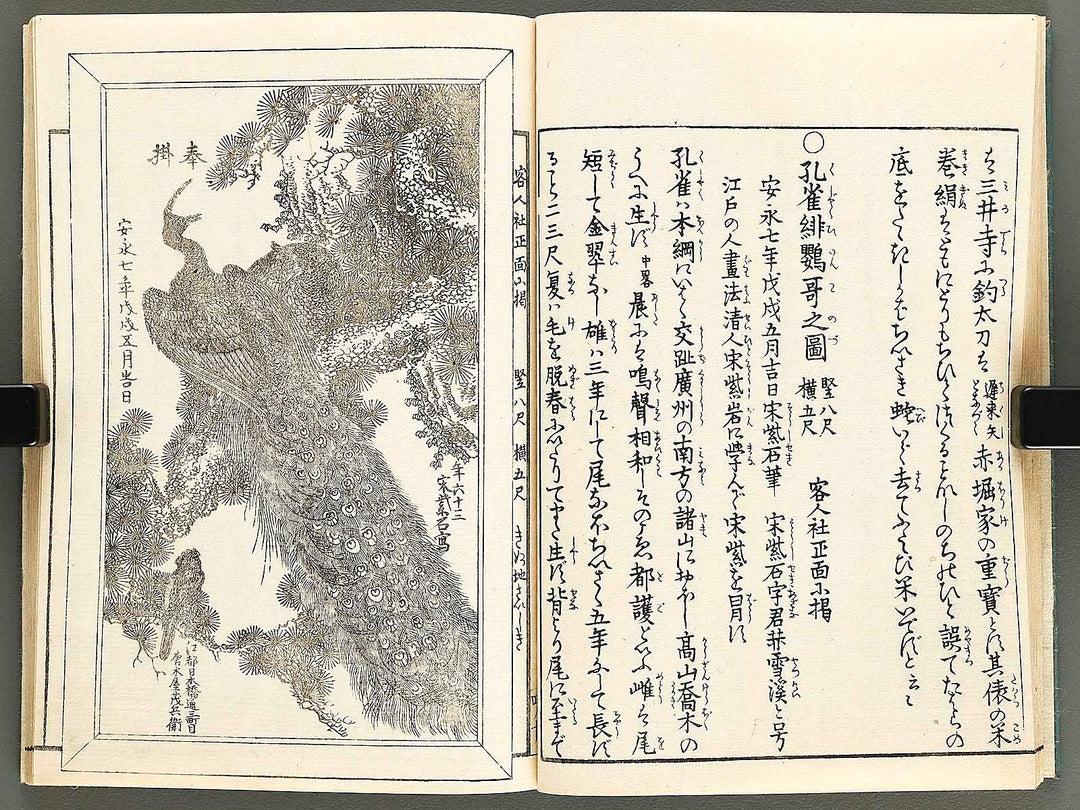 は三井寺ニ釣太刀は遅来矢赤堀家の重寳とす其俵の米
巻絹もともにとりもちひてつくることなしのちのひと誤てたはらの
底をたゝきしかばちいさき蛇いで去てふたゝび米いでずと云々
〇孔雀緋鸚哥之圖 竪八尺 横五尺 客人社正面ニ掲
安永七年戊戌五月吉日宋紫石筆 宋紫石字君赫雪溪と号
江戸の人畫法清人宋紫岩に學んで宋紫を冒す
孔雀ハ本綱にいく交趾廣州の南方の諸山におほし高山喬木の
うへに生ず 中畧 晨には鳴聲相和しそのこゑ都護といふ雌は尾
短して金翠なし雄ハ三年にして尾なほちいさく五年にして長ず
ること二三尺夏ハ毛を脱春にいたりてまた生ず背より尾に至まで
客人社正面ニ掲 竪八尺 横五尺 きぬ地さいしき
奉掛
安永七年戊戌五月吉日
年六十三
宋紫石寫
江都日本橋通三町目
唐木屋茂兵衛